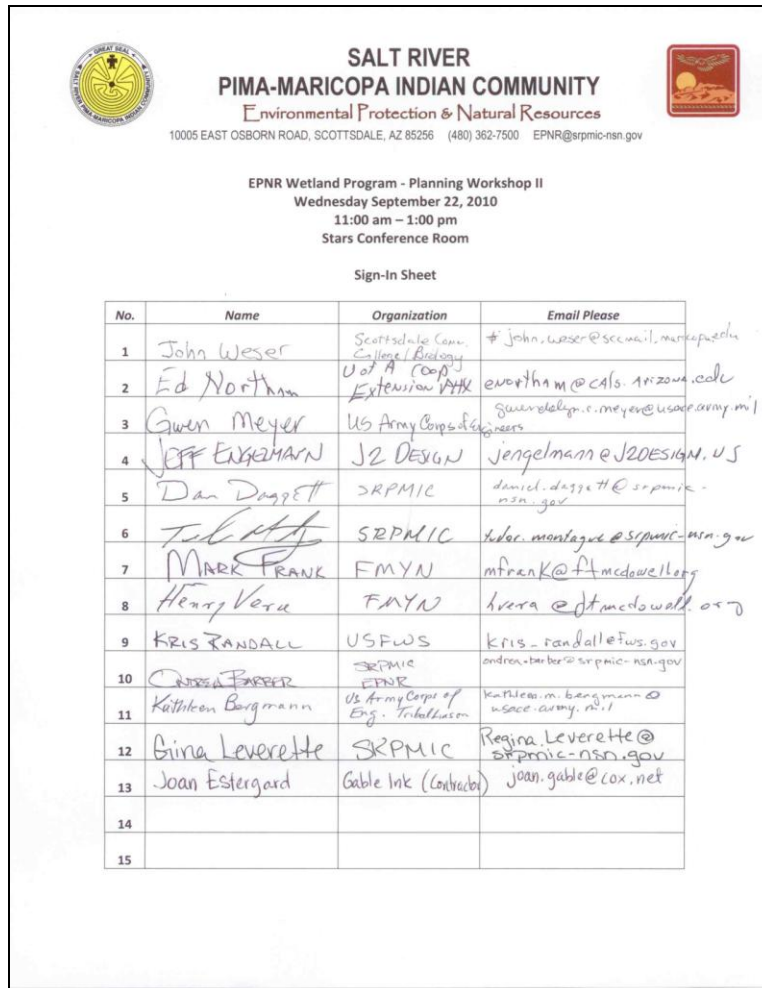 GREAT SEAL
SALT RIVER PIMA-MARICOPA INDIAN COMMUNITY
SALT RIVER
PIMA-MARICOPA INDIAN COMMUNITY
Environmental Protection & Natural Resources
10005 EAST OSBORN ROAD, SCOTTSDALE, AZ 85256 (480) 362-7500 EPNR@srpmic-nsn.gov
EPNR Wetland Program - Planning Workshop II
Wednesday September 22, 2010
11:00 am – 1:00 pm
Stars Conference Room
Sign-In Sheet
No. Name Organization Email Please
1 John Weser Scottsdale Comm. College/Biology john.weser@sccmail.maricopa.edu
2 Ed Northam U of A Coop Extension enortham@cals.arizona.edu
3 Gwen Meyer US Army Corps of Engineers gwendolyn.c.meyer@usace.army.mil
4 JEFF ENGELMANN J2 DESIGN jengelmann@J2DESIGN.US
5 Dan Daggett SRPMIC daniel.daggett@srpmic-
nsn.gov
6 SRPMIC tudor.montague@srpmic-nsn.gov
7 MARK FRANK FMYN mfrank@ftmcdowell.org
8 Henry Vera FMYN hvera@ftmcdowell.org
9 KRIS RANDALL USFWS kris_randall@fws.gov
10 ANDREA BARBER SRPMIC EPNR andrea.barber@srpmic-nsn.gov
11 Kathleen Bergmann US Army Corps of Eng. Tribal Liaison kathleen.m.bergmann@
usace.army.mil
12 Gina Leverette SRPMIC Regina.Leverette@
srpmic-nsn.gov
13 Joan Estergard Gable Ink (Contractor) joan.gable@cox.net
14
15